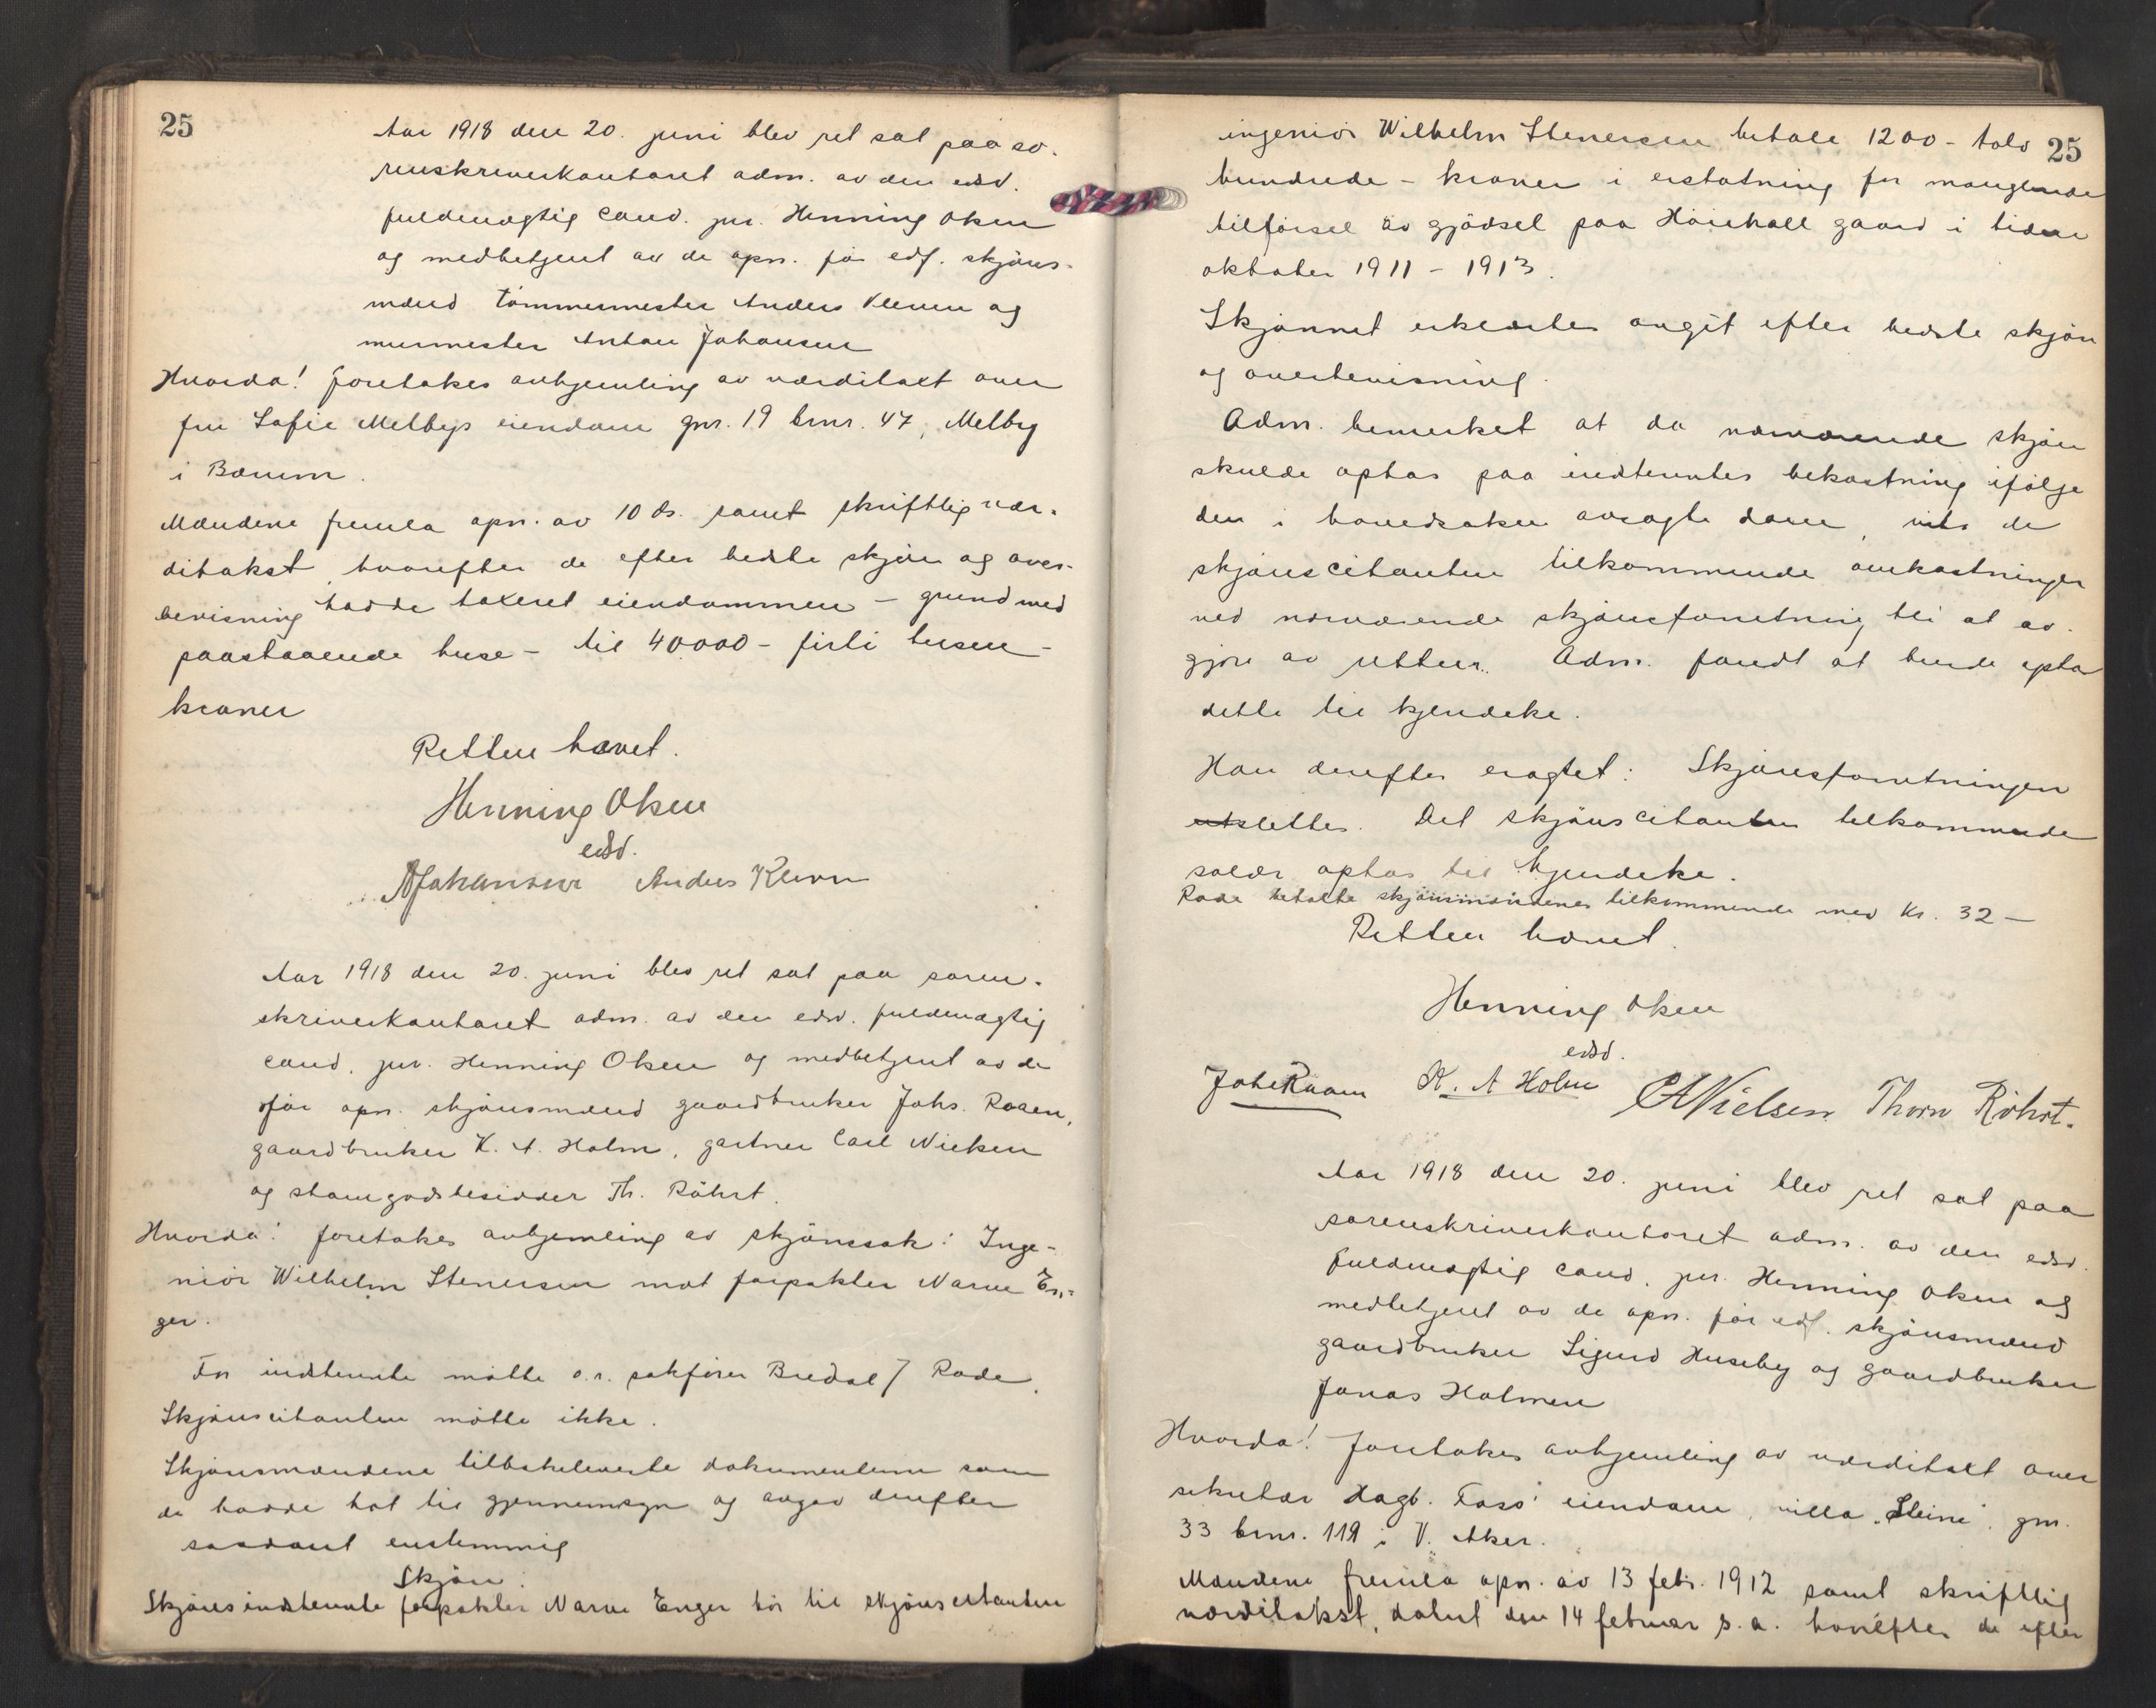 25
Aar 1918 den 20. juni blev ret sat paa so-
renskriverkontoret adm. av den edsv.
fuldmægtig cand. jur. Henning Olsen
og medbetjent av de opn. før edf. skjøns-
mænd tømmermester Anders Kleven og
murmester Anton Johansen
Hvorda! foretokes avhjemling av værditaxt over
fru Sofie Melbys eiendom gnr. 19 brnr. 47, Melby
i Bærum.
Mændene fremla opn. av 10 ds. samt skriftlig vær-
ditakst, hvorefter de efter bedste skjøn og over-
bevisning hadde taxeret eiendommen – grund med
paastaaende huse – til 40000 – firti tusen –
kroner
Retten hævet.
Henning Olsen
edsv.
AJohansen Anders Kleven
Aar 1918 den 20. juni blev ret sat paa soren-
skriverkontoret adm. av den edsv. fuldmægtig
cand. jur. Henning Olsen og medbetjent av de
før opn. skjønsmænd gaardbruker Johs. Roaen,
gaardbruker K. A. Holm, gartner Carl Nielsen
og stamgodsbesidder Th. Röhrt.
Hvorda! foretokes avhjemling av skjønssak: Inge-
niør Wilhelm Stenersen mot forpakter Narve En-
ger.
For indstevnte møtte o.r. sakfører Bredal / Rode.
Skjønscitanten møtte ikke.
Skjønsmændene tilbakeleverte dokumenterne som
de hadde hat til gjennemsyn og avgav derefter
saadant enstemmig
Skjøn:
Skjønsindstevnte forpakter Narve Enger bør til skjønscitanten
25
ingeniør Wilhelm Stenersen betale 1200 – tolv
hundrede – kroner i erstatning for manglende
tilførsel av gjødsel paa Høiehall gaard i tiden
oktober 1911 – 1913.
Skjønnet erklærtes avgit efter bedste skjøn
og overbevisning.
Adm. bemerket at da nærværende skjøn
skulde optas paa indstevntes bekostning ifølge
den i hovedsaken avsagte dom, vils de
skjønscitanten tilkommende omkostninger
ved nærværende skjønsforretning bli at av-
gjøre av retten. Adm. fandt at burde opta
dette til kjendelse.
Han derefter eragtet: Skjønsforretningen
sluttes. Det skjønscitanten tilkommende
salær optas til kjendelse.
Rode betalte skjønsmændenes tilkommende med kr. 32 –
Retten hævet.
Henning Olsen
edsv.
Johs Roaen K. A Holm CANielsen Thorv Röhrt.
Aar 1918 den 20. juni blev ret sat paa
sorenskriverkontoret adm. av den edsv.
fuldmægtig cand. jur. Henning Olsen og
medbetjent av de opn. før edf. skjønsmænd
gaardbruker Sigurd Huseby og gaardbruker
Jonas Holmen
Hvorda! foretokes avhjemling av værditaxt over
sekretær Dagf. Foss' eiendom, villa „Steini", gnr.
33 brnr. 119 i V. Aker.
Mændene fremla opn. av 13 febr. 1912 samt skriftlig
værditakst, datert den 14 februar s.a. hvorefter de efter